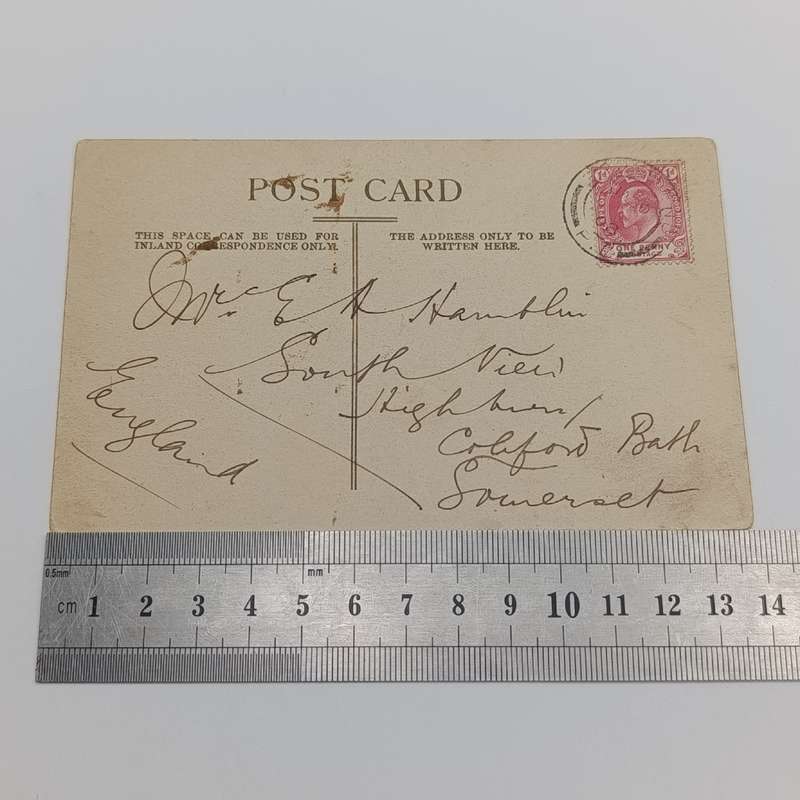 POST CARD
THIS SPACE CAN BE USED FOR
INLAND CORRESPONDENCE ONLY.
THE ADDRESS ONLY TO BE
WRITTEN HERE.
ONE PENNY
E H Hamblin
South View
Highbury
Coleford Bath
Somerset
England
0.5mm
mm
cm 1 2 3 4 5 6 7 8 9 10 11 12 13 14